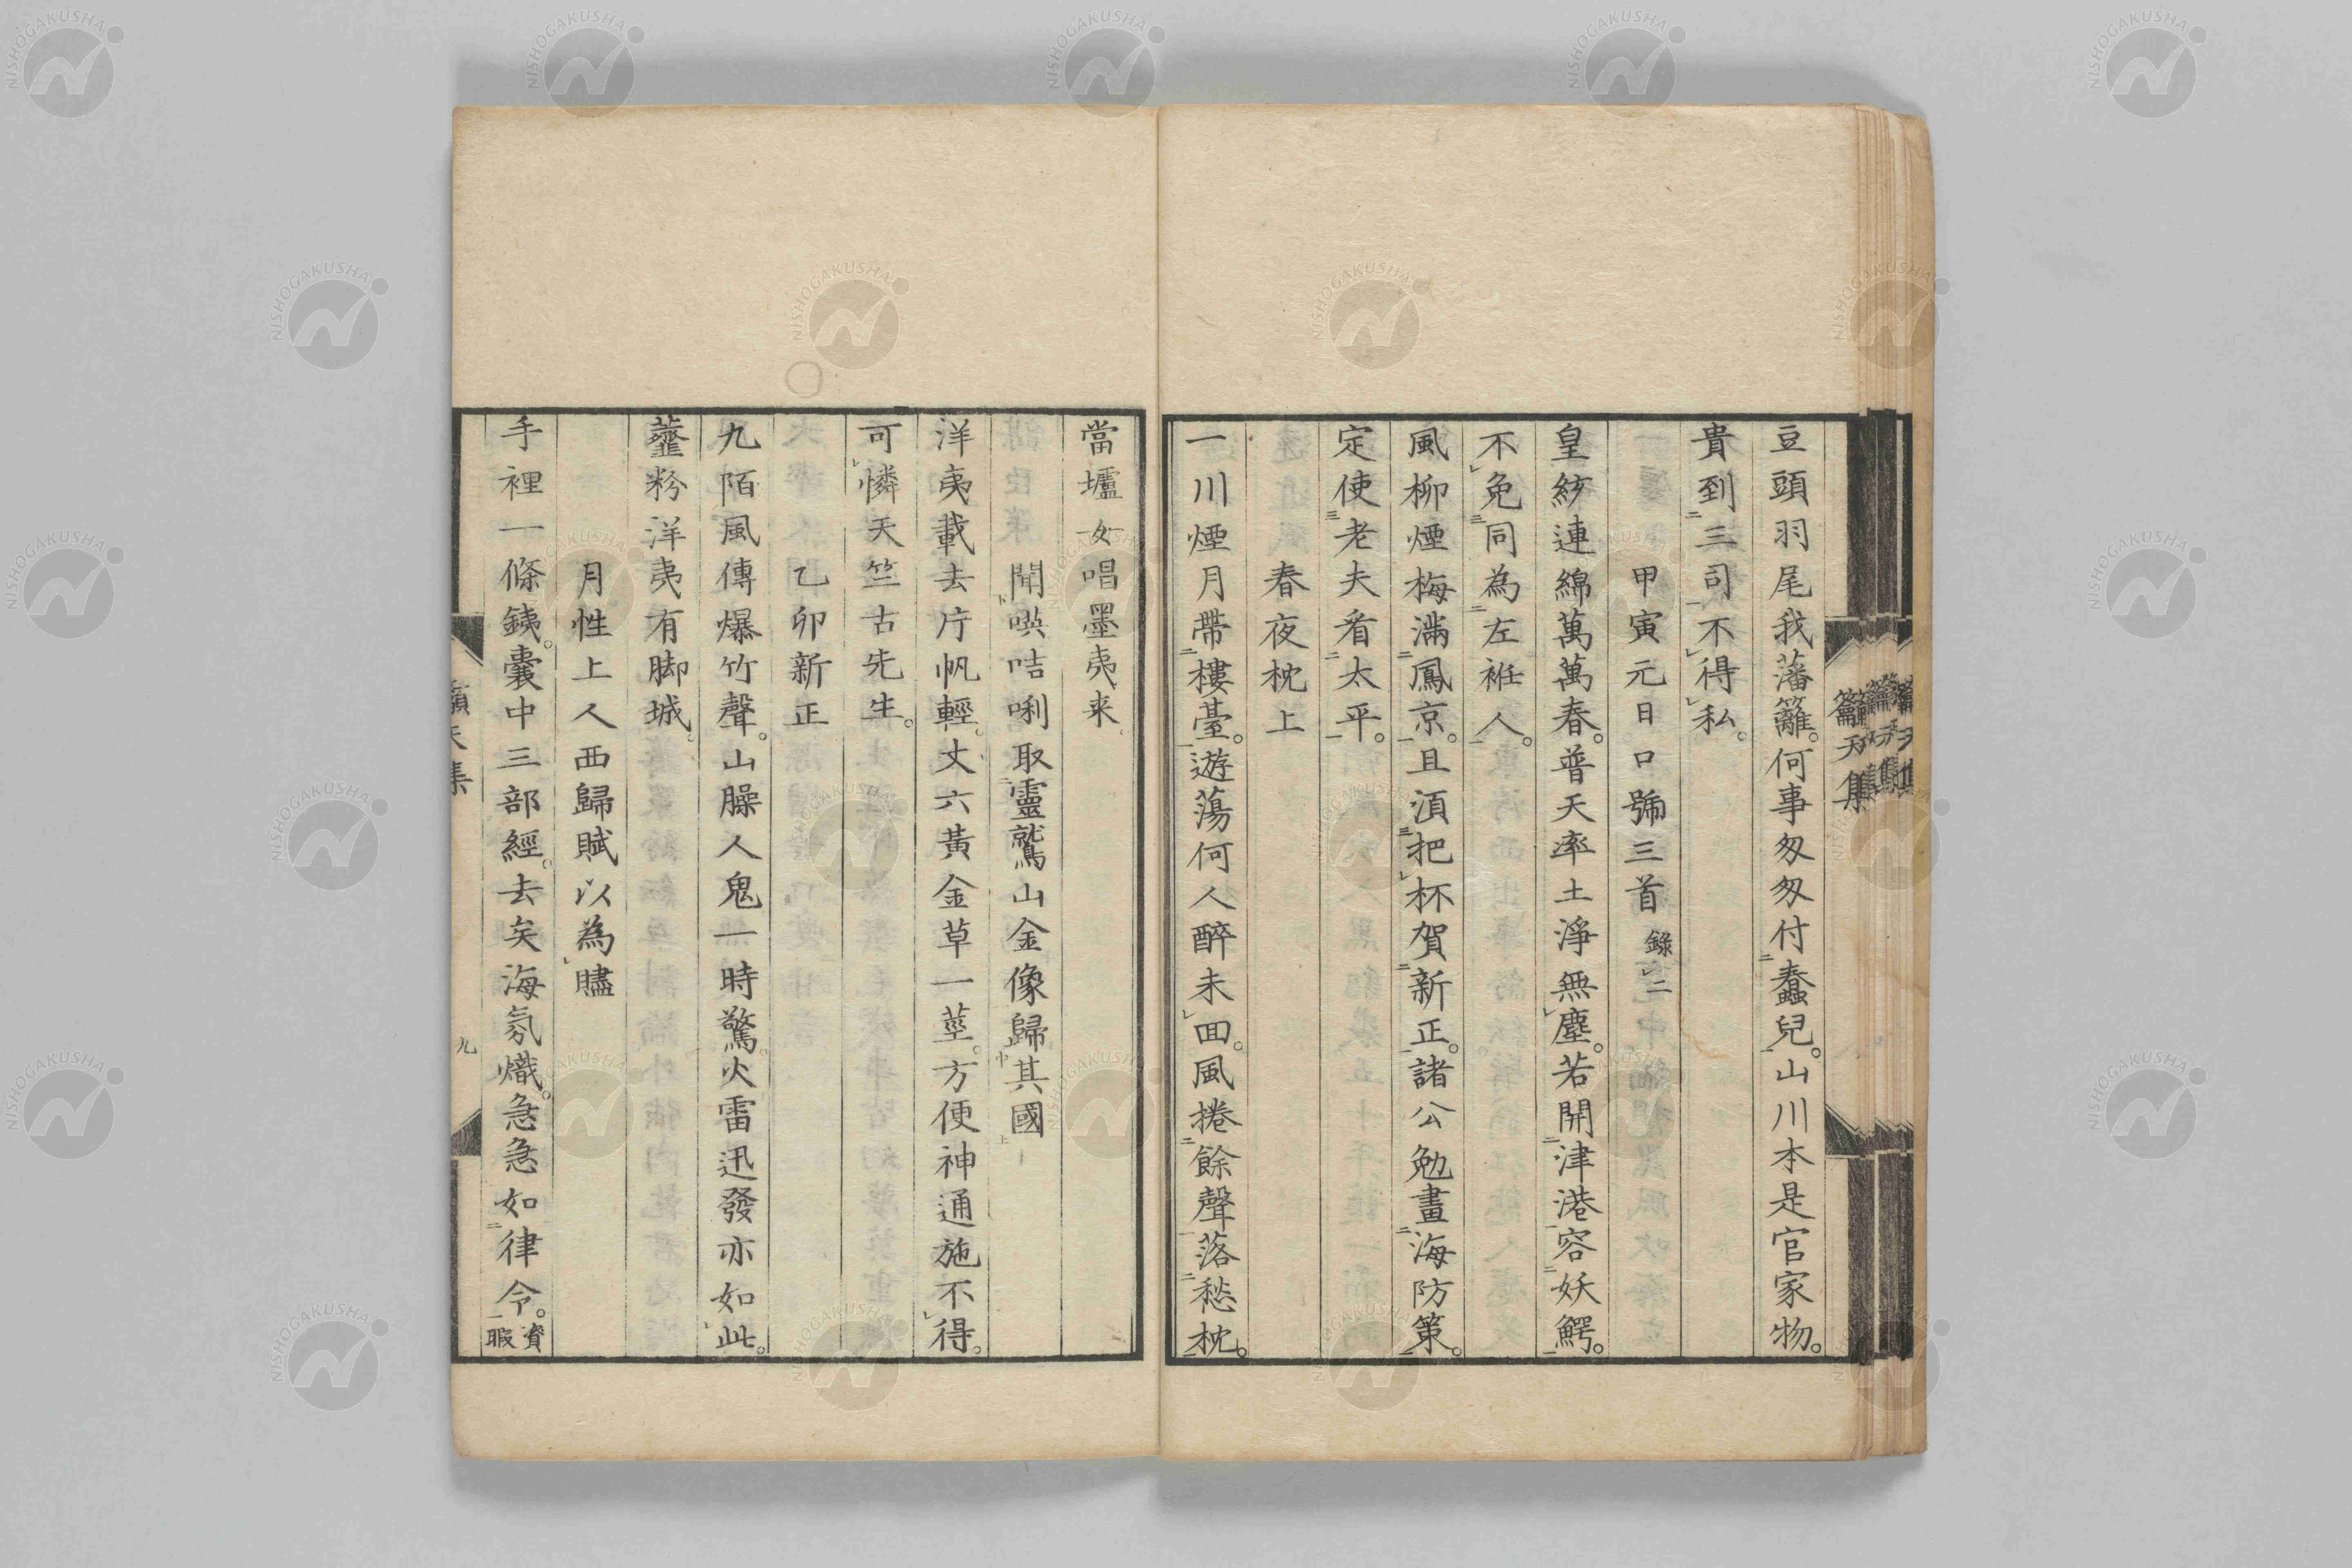 豆頭羽尾我藩籬。何事匆匆付蠢兒。山川本是官家物。
貴到三司不得私。
甲寅元日口號三首 錄二
皇紘連綿萬萬春。普天率土淨無塵。若開津港容妖鰐。
不免同為左袵人。
風柳煙梅滿鳳京。且須把杯賀新正。諸公勉畫海防策。
定使老夫看太平。
春夜枕上
一川煙月帶樓臺。遊蕩何人醉未回。風捲餘聲落愁枕。
當壚女唱墨夷来。
聞㗲咭唎取靈鷲山金像歸其國
洋夷載去片帆輕。丈六黃金草一莖。方便神通施不得。
可憐天竺古先生。
乙卯新正
九陌風傳爆竹聲。山臊人鬼一時驚。火雷迅發亦如此。
虀粉洋夷有脚城。
月性上人西歸賦以為贐
手裡一條銕。囊中三部經。去矣海氛熾。急急如律令。資
暇
籟天集
九